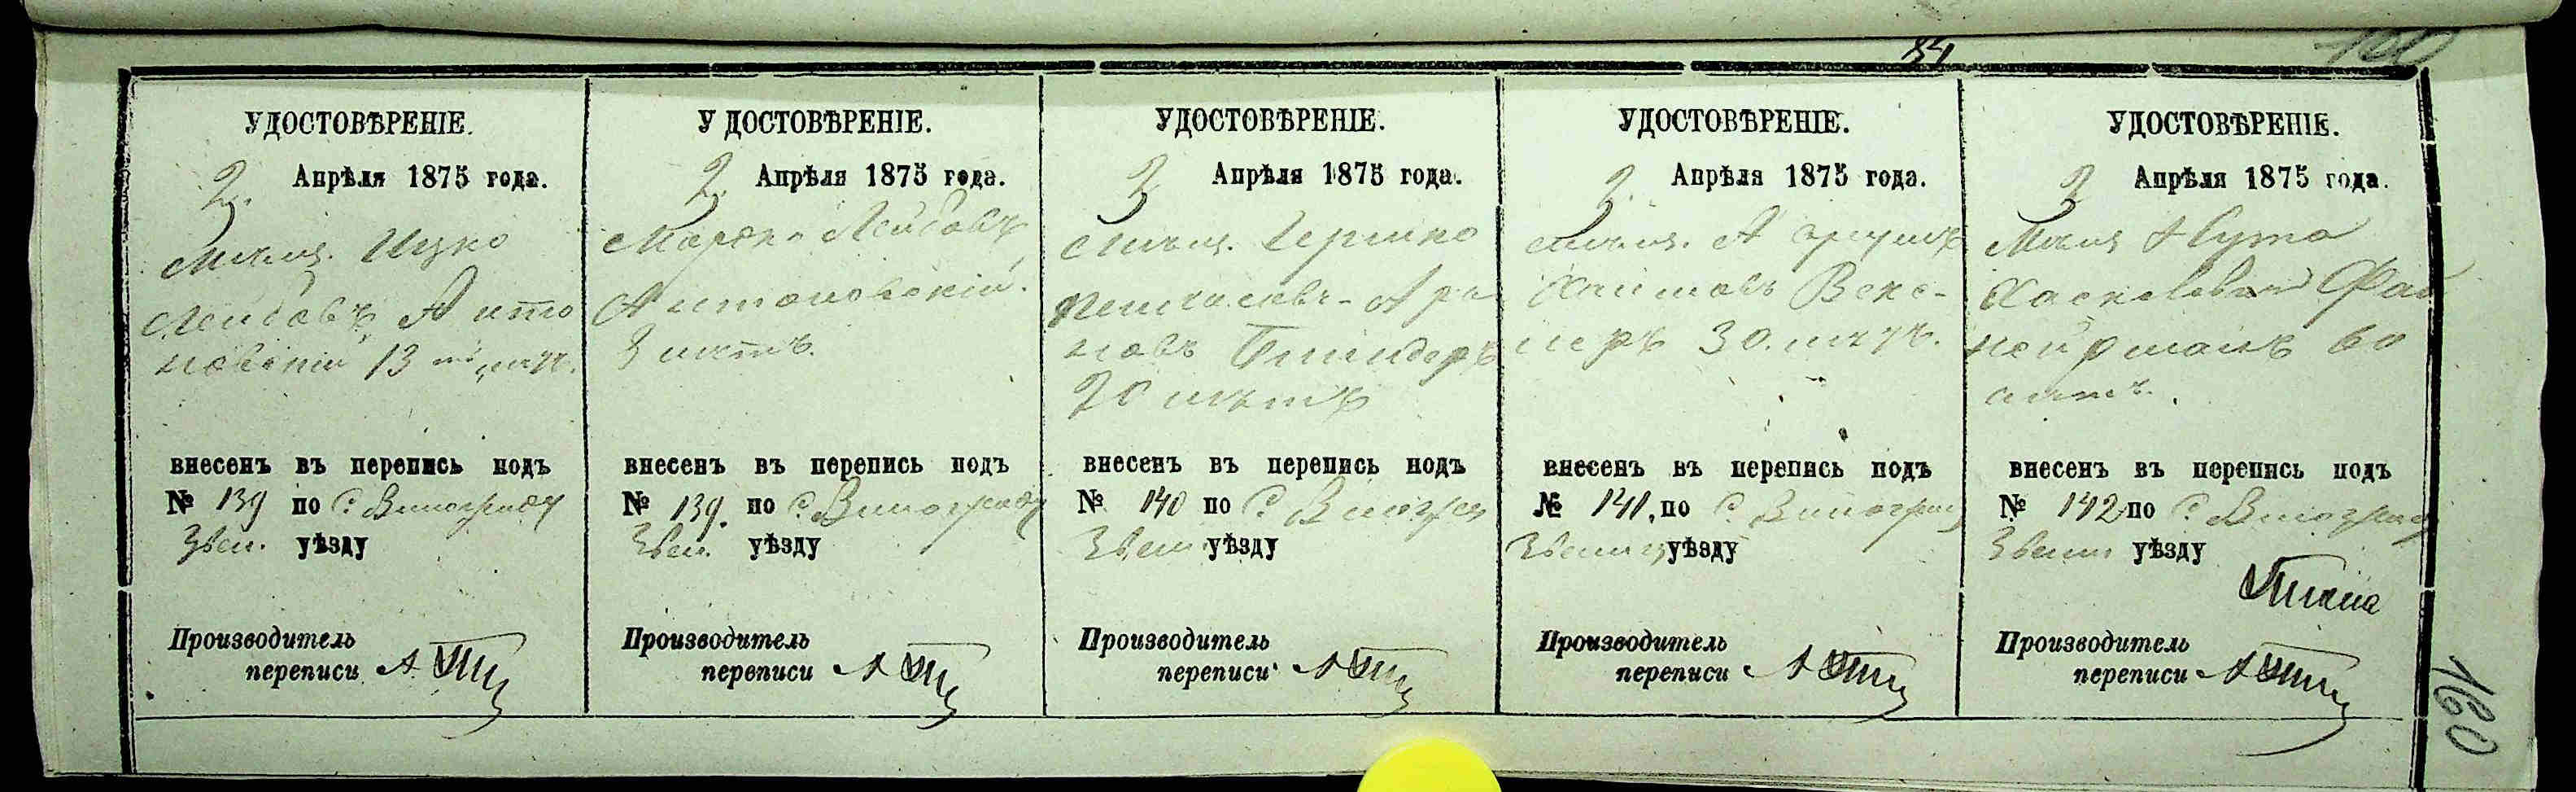 160
УДОСТОВѢРЕНІЕ.
2. Апрѣля 1875 года.
Мѣщ. Ицко
Лейбовъ Анто
новскій 13 лѣт.
внесенъ въ перепись подъ
№ 139 по с. Винограду
Звен. уѣзду
Производитель
переписи А.
УДОСТОВѢРЕНІЕ.
2. Апрѣля 1875 года.
Лейбовъ
Антоновскій.
3 лѣтъ.
внесенъ въ перепись подъ
№ 139. по с. Винограду
Звен. уѣзду
Производитель
переписи А
УДОСТОВѢРЕНІЕ.
2 Апрѣля 1875 года.
Мѣщ. Гершко
20 лѣтъ
внесенъ въ перепись подъ
№ 140 по с. Виногра
Звен уѣзду
Производитель
переписи А
УДОСТОВѢРЕНІЕ.
2. Апрѣля 1875 года.
Мѣщ.
Хаимовъ Векс-
леръ 30. лѣтъ.
внесенъ въ перепись подъ
№ 141, по с. Виноград
Звениг уѣзду
Производитель
переписи А
УДОСТОВѢРЕНІЕ.
2 Апрѣля 1875 года.
Мѣщ Нута
60
лѣтъ.
внесенъ въ перепись подъ
№ 142 по с. Виноград
Звени уѣзду
Производитель
переписи А
160